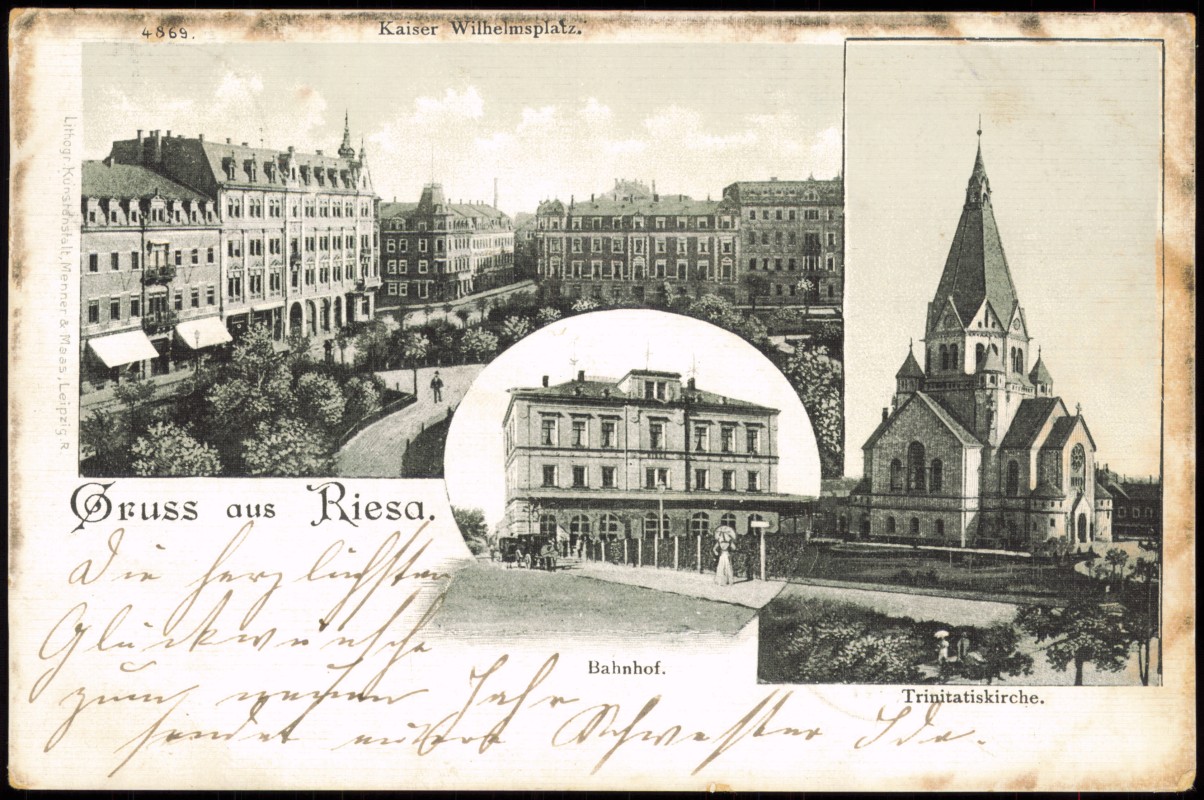 4869.
Kaiser Wilhelmsplatz.
Lithogr. Kunstanstalt, Menner & Maas, Leipzig. R.
Gruss aus Riesa.
Die herzlichsten
Glückwünsche
zum neuen Jahr
sendet Schwester Ida.
Bahnhof.
Trinitatiskirche.